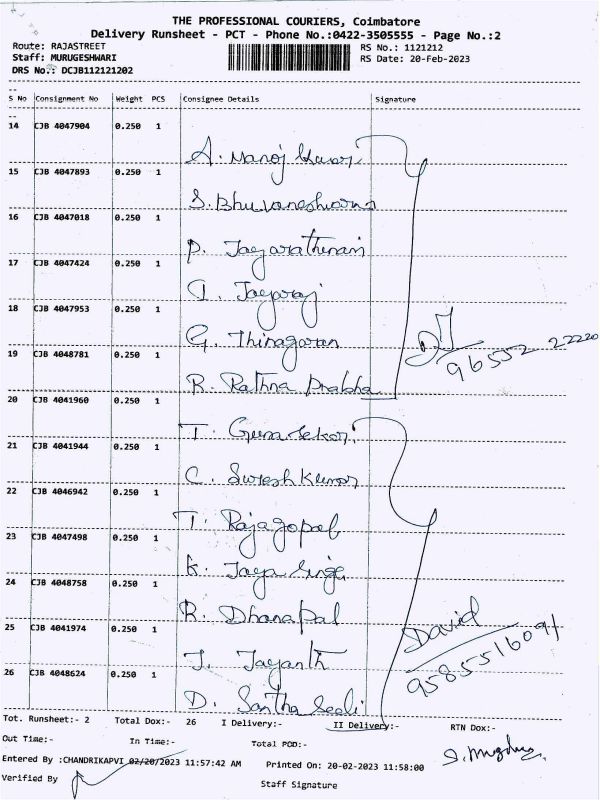 THE PROFESSIONAL COURIERS, Coimbatore
Delivery Runsheet - PCT - Phone No.:0422-3505555 - Page No.:2
Route: RAJASTREET RS No.: 1121212
Staff: MURUGESHWARI RS Date: 20-Feb-2023
DRS No.: DCJB112121202
S No Consignment No Weight PCS Consignee Details Signature
14 CJB 4047904 0.250 1
A. Manoj Kumar
15 CJB 4047893 0.250 1
S. Bhuvaneshwari
16 CJB 4047018 0.250 1
P. Jayarathinam
17 CJB 4047424 0.250 1
I. Jayaraj
18 CJB 4047953 0.250 1
G. Thinagaran
19 CJB 4048781 0.250 1
R. Rathna Prabha
96552 22220
20 CJB 4041960 0.250 1
T. Gunasekar
21 CJB 4041944 0.250 1
C. Sureshkumar
22 CJB 4046942 0.250 1
T. Rajagopal
23 CJB 4047498 0.250 1
K. Jaya Singe
24 CJB 4048758 0.250 1
R. Dhanapal
25 CJB 4041974 0.250 1
David
9585516091
J. Jayanth
26 CJB 4048624 0.250 1
D. Santha Seeli
Tot. Runsheet:- 2 Total Dox:- 26 I Delivery:- II Delivery:- RTN Dox:-
Out Time:- In Time:- Total POD:-
Entered By :CHANDRIKAPVI 02/20/2023 11:57:42 AM Printed On: 20-02-2023 11:58:00
Verified By Staff Signature